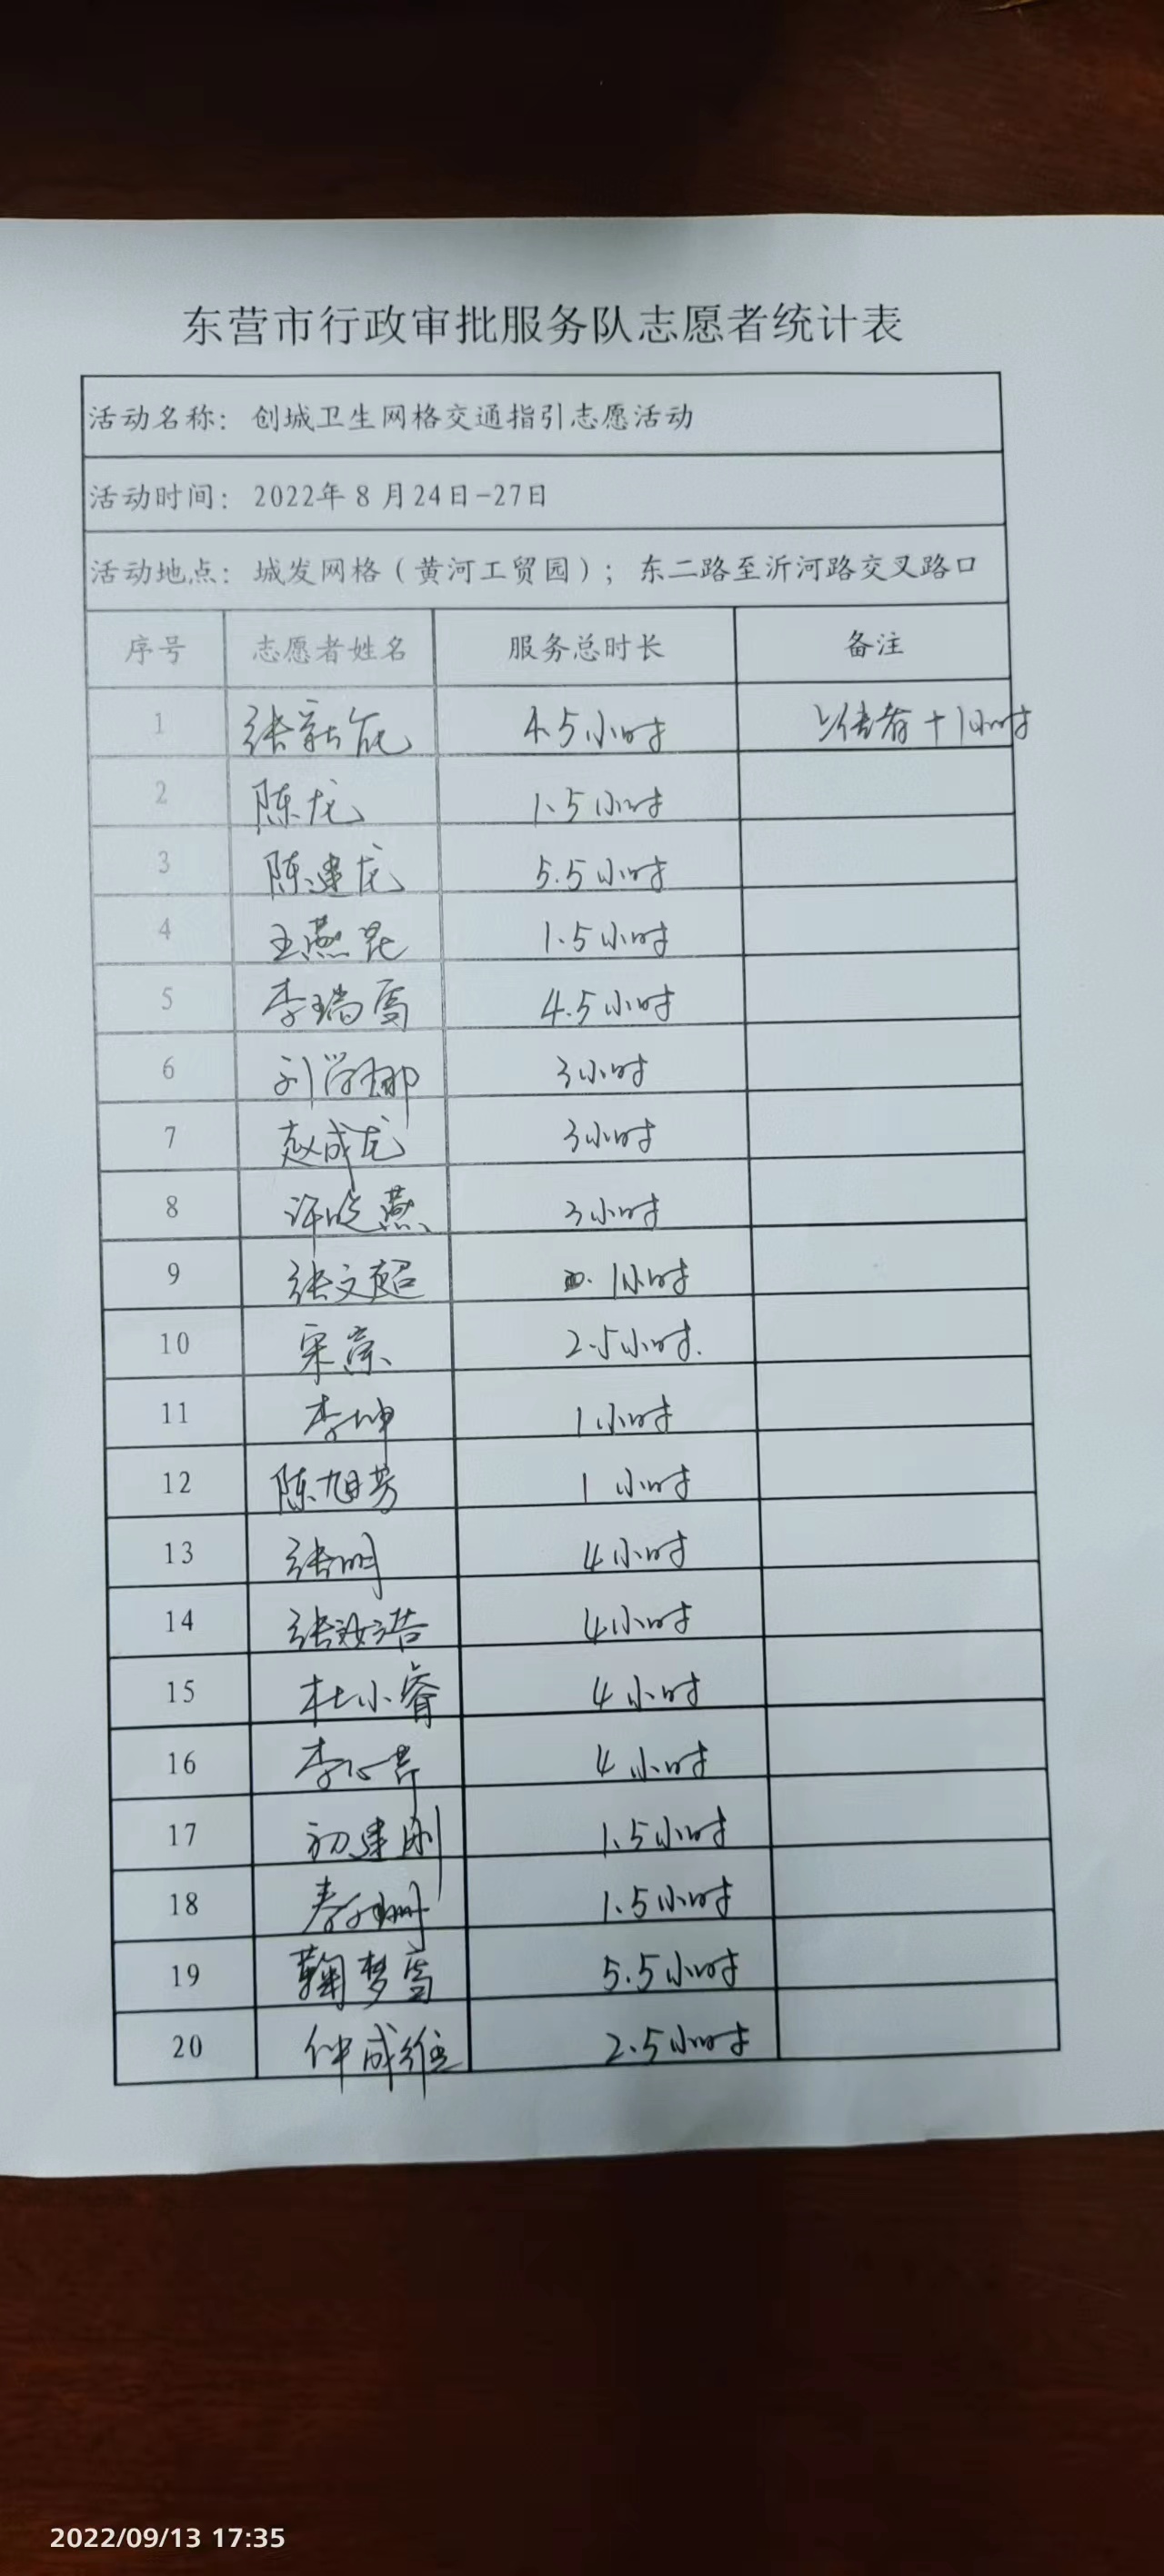 东营市行政审批服务队志愿者统计表
活动名称：创城卫生网格交通指引志愿活动
活动时间：2022年8月24日-27日
活动地点：城发网格（黄河工贸园）；东二路至沂河路交叉路口
序号 志愿者姓名 服务总时长 备注
1 张 4.5小时 上传者+1小时
2 陈龙 1.5小时
3 陈建龙 5.5小时
4 王燕昆 1.5小时
5 李瑞雪 4.5小时
6 刘学娜 3小时
7 赵成龙 3小时
8 许晓燕 3小时
9 张文超 1小时
10 宋 2.5小时.
11 李坤 1小时
12 陈旭芳 1小时
13 张明 4小时
14 张汝诺 4小时
15 杜小睿 4小时
16 李心芹 4小时
17 初建刚 1.5小时
18 秦 1.5小时
19 鞠梦雪 5.5小时
20 仲成维 2.5小时
2022/09/13 17:35